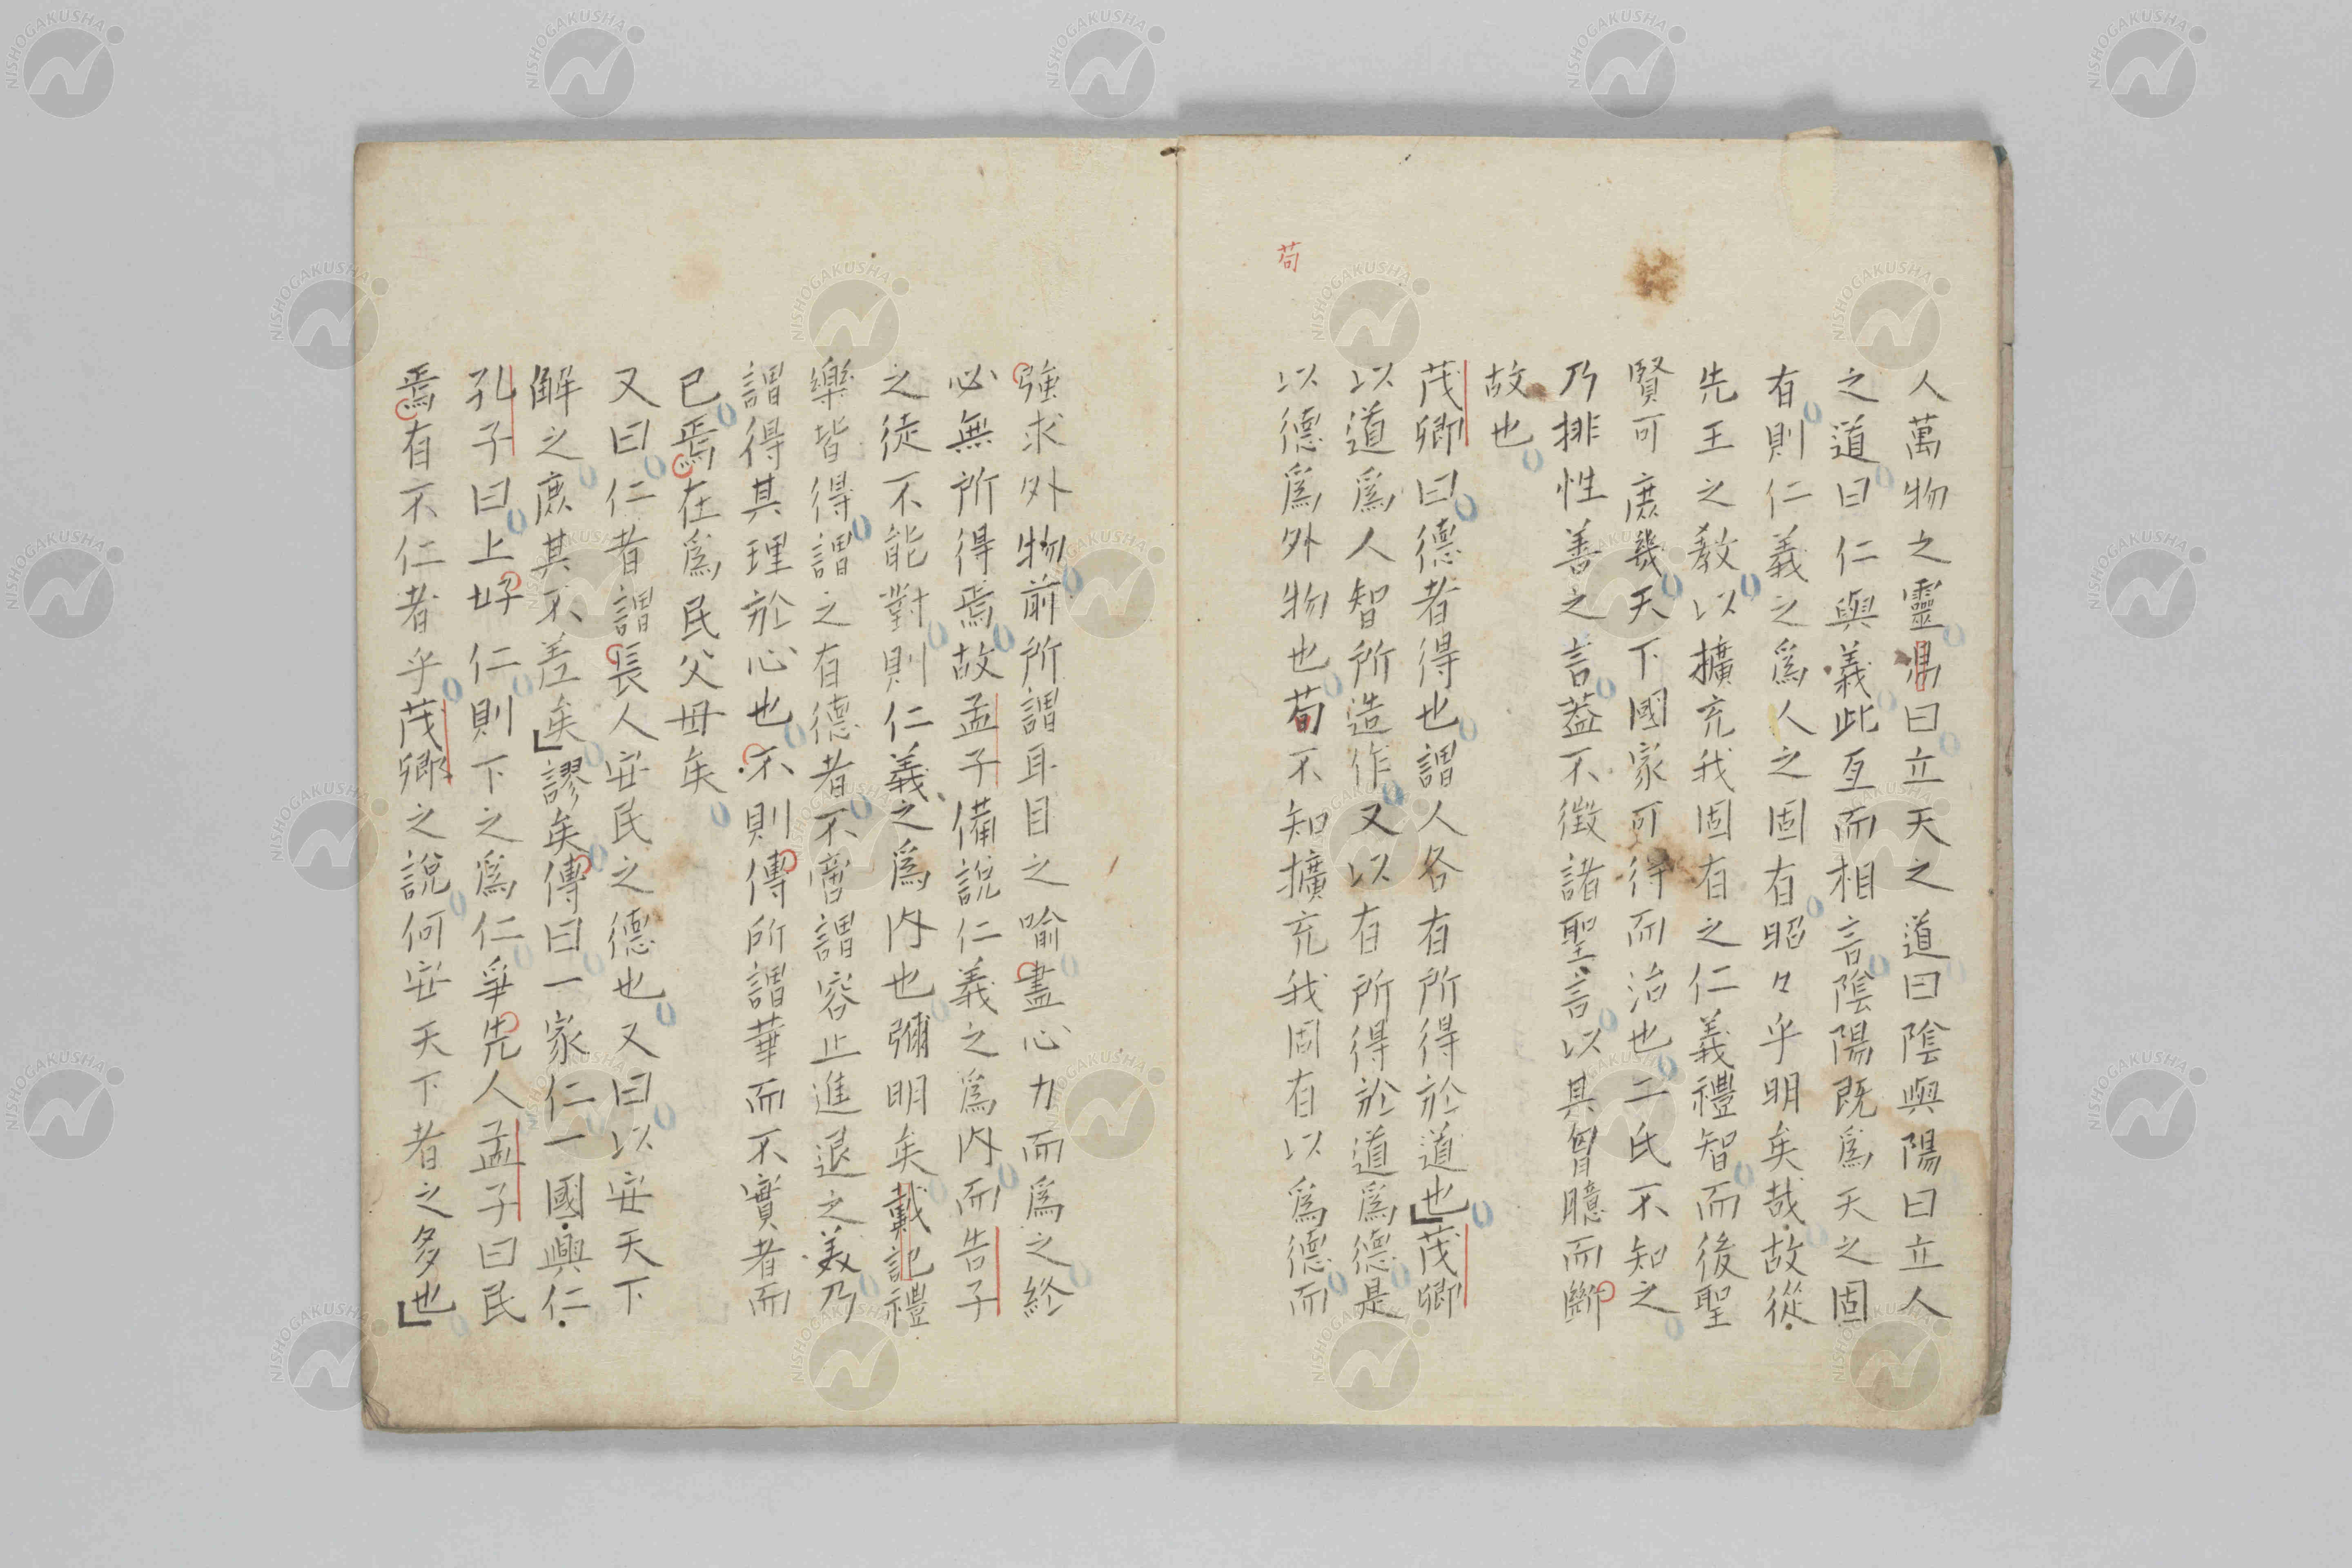 人萬物之靈焉曰立天之道曰陰與陽曰立人
之道曰仁與義此互而相言陰陽既爲天之固
有則仁義之爲人之固有昭々乎明矣哉故從
先王之教以擴充我固有之仁義禮智而後聖
賢可庶幾天下國家可得而治也二氏不知之
乃排性善之言蓋不徴諸聖言以其胷臆而斷
故也
茂卿曰德者得也謂人各有所得於道也茂卿
以道爲人智所造作又以有所得於道爲德是
以德爲外物也苟不知擴充我固有以爲德而
苟
強求外物前所謂耳目之喩盡心力而爲之終
必無所得焉故孟子備說仁義之爲内而告子
之徒不能對則仁義之爲内也彌明矣戴記禮
樂皆得謂之有德者不啻謂容止進退之美乃
謂得其理於心也不則傳所謂華而不實者而
已焉在爲民父毋矣
又曰仁者謂長人安民之德也又曰以安天下
解之庶其不差矣謬矣傳曰一家仁一國興仁
孔子曰上好仁則下之爲仁爭先人孟子曰民
焉有不仁者乎茂卿之說何安天下者之多也
NISHOGAKUSHA